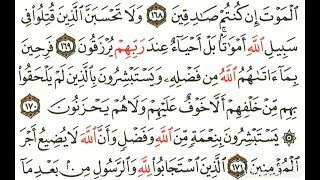 ٱلْمَوْتَ إِن كُنتُمْ صَٰدِقِينَ ١٦٨ وَلَا تَحْسَبَنَّ ٱلَّذِينَ قُتِلُوا۟ فِى
سَبِيلِ ٱللَّهِ أَمْوَٰتًۢا بَلْ أَحْيَآءٌ عِندَ رَبِّهِمْ يُرْزَقُونَ ١٦٩ فَرِحِينَ
بِمَآ ءَاتَىٰهُمُ ٱللَّهُ مِن فَضْلِهِۦ وَيَسْتَبْشِرُونَ بِٱلَّذِينَ لَمْ يَلْحَقُوا۟
بِهِم مِّنْ خَلْفِهِمْ أَلَّا خَوْفٌ عَلَيْهِمْ وَلَا هُمْ يَحْزَنُونَ ١٧٠
۞ يَسْتَبْشِرُونَ بِنِعْمَةٍ مِّنَ ٱللَّهِ وَفَضْلٍ وَأَنَّ ٱللَّهَ لَا يُضِيعُ أَجْرَ
ٱلْمُؤْمِنِينَ ١٧١ ٱلَّذِينَ ٱسْتَجَابُوا۟ لِلَّهِ وَٱلرَّسُولِ مِنۢ بَعْدِ مَآ